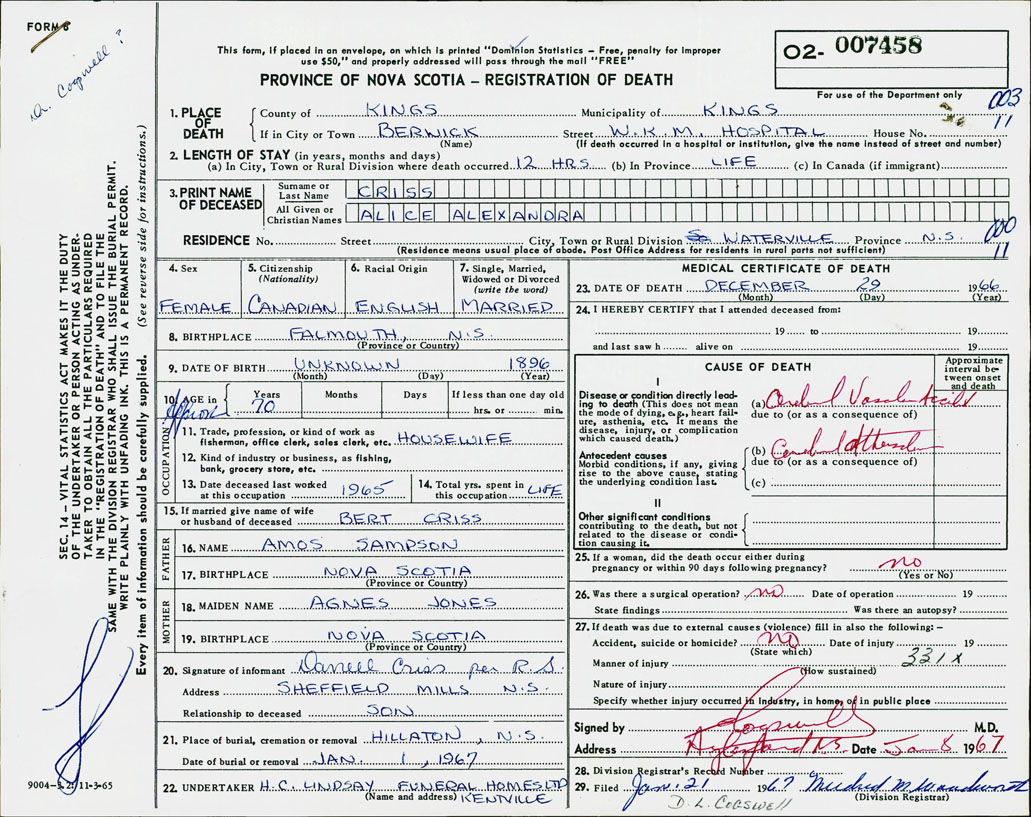 FORM 6
D. Cogwell ?
This form, if placed in an envelope, on which is printed "Dominion Statistics – Free, penalty for improper
use $50," and properly addressed will pass through the mail "FREE"
PROVINCE OF NOVA SCOTIA – REGISTRATION OF DEATH
02- 007458
For use of the Department only
003
11
1. PLACE OF DEATH
County of KINGS Municipality of KINGS
If in City or Town BERWICK Street W.K.M. HOSPITAL House No.
(Name) (If death occurred in a hospital or institution, give the name instead of street and number)
2. LENGTH OF STAY (in years, months and days)
(a) In City, Town or Rural Division where death occurred 12 HRS. (b) In Province LIFE (c) In Canada (if immigrant)
3. PRINT NAME OF DECEASED
Surname or Last Name CRISS
All Given or Christian Names ALICE ALEXANDRA
RESIDENCE No. Street City, Town or Rural Division WATERVILLE Province N.S.
(Residence means usual place of abode. Post Office Address for residents in rural parts not sufficient)
000
11
4. Sex
FEMALE
5. Citizenship
(Nationality)
CANADIAN
6. Racial Origin
ENGLISH
7. Single, Married,
Widowed or Divorced
(write the word)
MARRIED
8. BIRTHPLACE FALMOUTH, N.S.
(Province or Country)
9. DATE OF BIRTH UNKNOWN 1896
(Month) (Day) (Year)
10. AGE in
Approx
Years Months Days If less than one day old
70 hrs. or min.
OCCUPATION
11. Trade, profession, or kind of work as
fisherman, office clerk, sales clerk, etc. HOUSEWIFE
12. Kind of industry or business, as fishing,
bank, grocery store, etc.
13. Date deceased last worked
at this occupation 1965
14. Total yrs. spent in
this occupation LIFE
15. If married give name of wife
or husband of deceased BERT CRISS
FATHER
16. NAME AMOS SAMPSON
17. BIRTHPLACE NOVA SCOTIA
(Province or Country)
MOTHER
18. MAIDEN NAME AGNES JONES
19. BIRTHPLACE NOVA SCOTIA
(Province or Country)
20. Signature of informant Darrell Criss per R.S.
Address SHEFFIELD MILLS N.S.
Relationship to deceased SON
21. Place of burial, cremation or removal HILLATON, N.S.
Date of burial or removal JAN. 1, 1967
22. UNDERTAKER H.C. LINDSAY FUNERAL HOMES LTD
(Name and address) KENTVILLE
MEDICAL CERTIFICATE OF DEATH
23. DATE OF DEATH DECEMBER 29 1966
(Month) (Day) (Year)
24. I HEREBY CERTIFY that I attended deceased from:
19 to 19
and last saw h alive on 19
CAUSE OF DEATH
Approximate
interval be-
tween onset
and death
I
Disease or condition directly lead-
ing to death (This does not mean
the mode of dying, e.g., heart fail-
ure, asthenia, etc. It means the
disease, injury, or complication
which caused death.)
(a) Cerebral Vascular Accid
due to (or as a consequence of)
Antecedent causes
Morbid conditions, if any, giving
rise to the above cause, stating
the underlying condition last.
(b) Cerebral
due to (or as a consequence of)
(c)
II
Other significant conditions
contributing to the death, but not
related to the disease or condi-
tion causing it.
25. If a woman, did the death occur either during
pregnancy or within 90 days following pregnancy? no
(Yes or No)
26. Was there a surgical operation? no Date of operation 19
State findings Was there an autopsy?
27. If death was due to external causes (violence) fill in also the following: –
Accident, suicide or homicide? no Date of injury 19
(State which)
Manner of injury 331X
(How sustained)
Nature of injury
Specify whether injury occurred in industry, in home, or in public place
Signed by Cogswell M.D.
Address Aylesford NS Date Jan 8 1967
28. Division Registrar's Record Number
29. Filed Jan. 21 1967 Mildred M. Woodworth
(Division Registrar)
D. L. COGSWELL
SEC. 14 – VITAL STATISTICS ACT MAKES IT THE DUTY
OF THE UNDERTAKER OR PERSON ACTING AS UNDER-
TAKER TO OBTAIN ALL THE PARTICULARS REQUIRED
IN THE "REGISTRATION OF DEATH" AND TO FILE THE
SAME WITH THE DIVISION REGISTRAR WHO SHALL ISSUE THE BURIAL PERMIT.
WRITE PLAINLY WITH UNFADING INK. THIS IS A PERMANENT RECORD.
Every item of information should be carefully supplied. (See reverse side for instructions.)